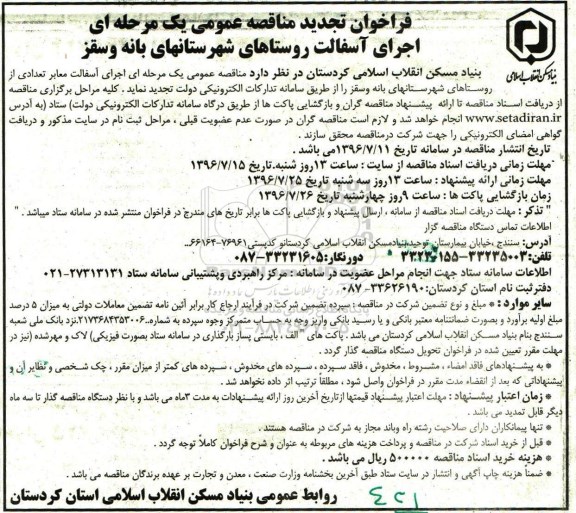 فراخوان تجدید مناقصه عمومی یک مرحله ای
اجرای آسفالت روستاهای شهرستانهای بانه وسقز
بنیاد مسکن انقلاب اسلامی
بنیاد مسکن انقلاب اسلامی کردستان در نظر دارد مناقصه عمومی یک مرحله ای اجرای آسفالت معابر تعدادی از
روستاهای شهرستانهای بانه وسقز را از طریق سامانه تدارکات الکترونیکی دولت تجدید نماید . کلیه مراحل برگزاری مناقصه
از دریافت اسناد مناقصه تا ارائه پیشنهاد مناقصه گران و بازگشایی پاکت ها از طریق درگاه سامانه تدارکات الکترونیکی دولت) ستاد (به آدرس
www.setadiran.ir انجام خواهد شد و لازم است مناقصه گران در صورت عدم عضویت قبلی ، مراحل ثبت نام در سایت مذکور و دریافت
گواهی امضای الکترونیکی را جهت شرکت درمناقصه محقق سازند .
تاریخ انتشار مناقصه در سامانه تاریخ ۱۳۹۶/۷/۱۱می باشد .
مهلت زمانی دریافت اسناد مناقصه از سایت : ساعت ۱۳روز شنبه.تاریخ ۱۳۹۶/۷/۱۵
مهلت زمانی ارائه پیشنهاد : ساعت ۱۳روز سه شنبه تاریخ ۱۳۹۶/۷/۲۵
زمان بازگشایی پاکت ها : ساعت ۹روز چهارشنبه تاریخ ۱۳۹۶/۷/۲۶
" تذکر : مهلت دریافت اسناد مناقصه از سامانه ، ارسال پیشنهاد و بازگشایی پاکت ها برابر تاریخ های مندرج در فراخوان منتشر شده در سامانه ستاد میباشد . "
اطلاعات تماس دستگاه مناقصه گزار
آدرس: سنندج ،خیابان بیمارستان توحید،بنیادمسکن انقلاب اسلامی کردستانو کدپستی۷۶۹۶۱-۶۶۱۶۴..
تلفن:۳۳۲۳۵۰۰۳- دورنگار:۳۳۲۳۱۶۰۵-۰۸۷
اطلاعات سامانه ستاد جهت انجام مراحل عضویت در سامانه : مرکز راهبردی وپشتیبانی سامانه ستاد ۲۷۳۱۳۱۳۱-۰۲۱
دفترثبت نام استان کردستان:۳۳۶۲۶۱۹۰- ۰۸۷
سایر موارد : * مبلغ و نوع تضمین شرکت در مناقصه : سپرده تضمین شرکت در فرآیند ارجاع کار برابر آئین نامه تضمین معاملات دولتی به میزان ۵ درصد
مبلغ اولیه برآورد و بصورت ضمانتنامه معتبر بانکی و یا رسید بانکی واریز وجه به حساب متمرکز وجوه سپرده به شماره..۲۱۷۳۶۸۴۳۵۳۰۰۶.نزد بانک ملی شعبه
سنندج بنام بنیاد مسکن انقلاب اسلامی کردستان می باشد . پاکت های "الف ، بایستی پساز بارگذاری در سامانه ستاد بصورت فیزیکی) لاک و مهرشده (نیز در
مهلت مقرر تعیین شده در فراخوان تحویل دستگاه مناقصه گذار گردد .
* به پیشنهادهای فاقد امضاء ، مشروط ، مخدوش ، فاقد سپرده ، سپرده های مخدوش ، سپرده های کمتر از میزان مقرر ، چک شخصی و نظایر آن و
پیشنهاداتی که بعد از انقضاء مدت مقرر در فراخوان واصل شود ، مطلقاً ترتیب اثر داده نخواهد شد .
* زمان اعتبار پیشنهاد : مهلت اعتبار پیشنهاد قیمتها ازتاریخ آخرین روز ارائه پیشنهادات به مدت ۳ماه می باشد و با نظر دستگاه مناقصه گذار تا سه ماه
دیگر قابل تمدید می باشد .
* تنها پیمانکاران دارای صلاحیت رشته راه وباند مجاز به شرکت در مناقصه هستند .
* قبل از خرید اسناد شرکت در مناقصه و پرداخت هزینه های مربوطه به عنوان و شرح فراخوان کاملاً توجه گردد .
* هزینه خرید اسناد مناقصه ۵۰۰۰۰۰ ریال می باشد .
* ضمناً هزینه چاپ آگهی و انتشار در سایت ستاد طبق آخرین بخشنامه وزارت صنعت ، معدن و تجارت بر عهده برندگان مناقصه می باشد .
روابط عمومی بنیاد مسکن انقلاب اسلامی استان کردستان